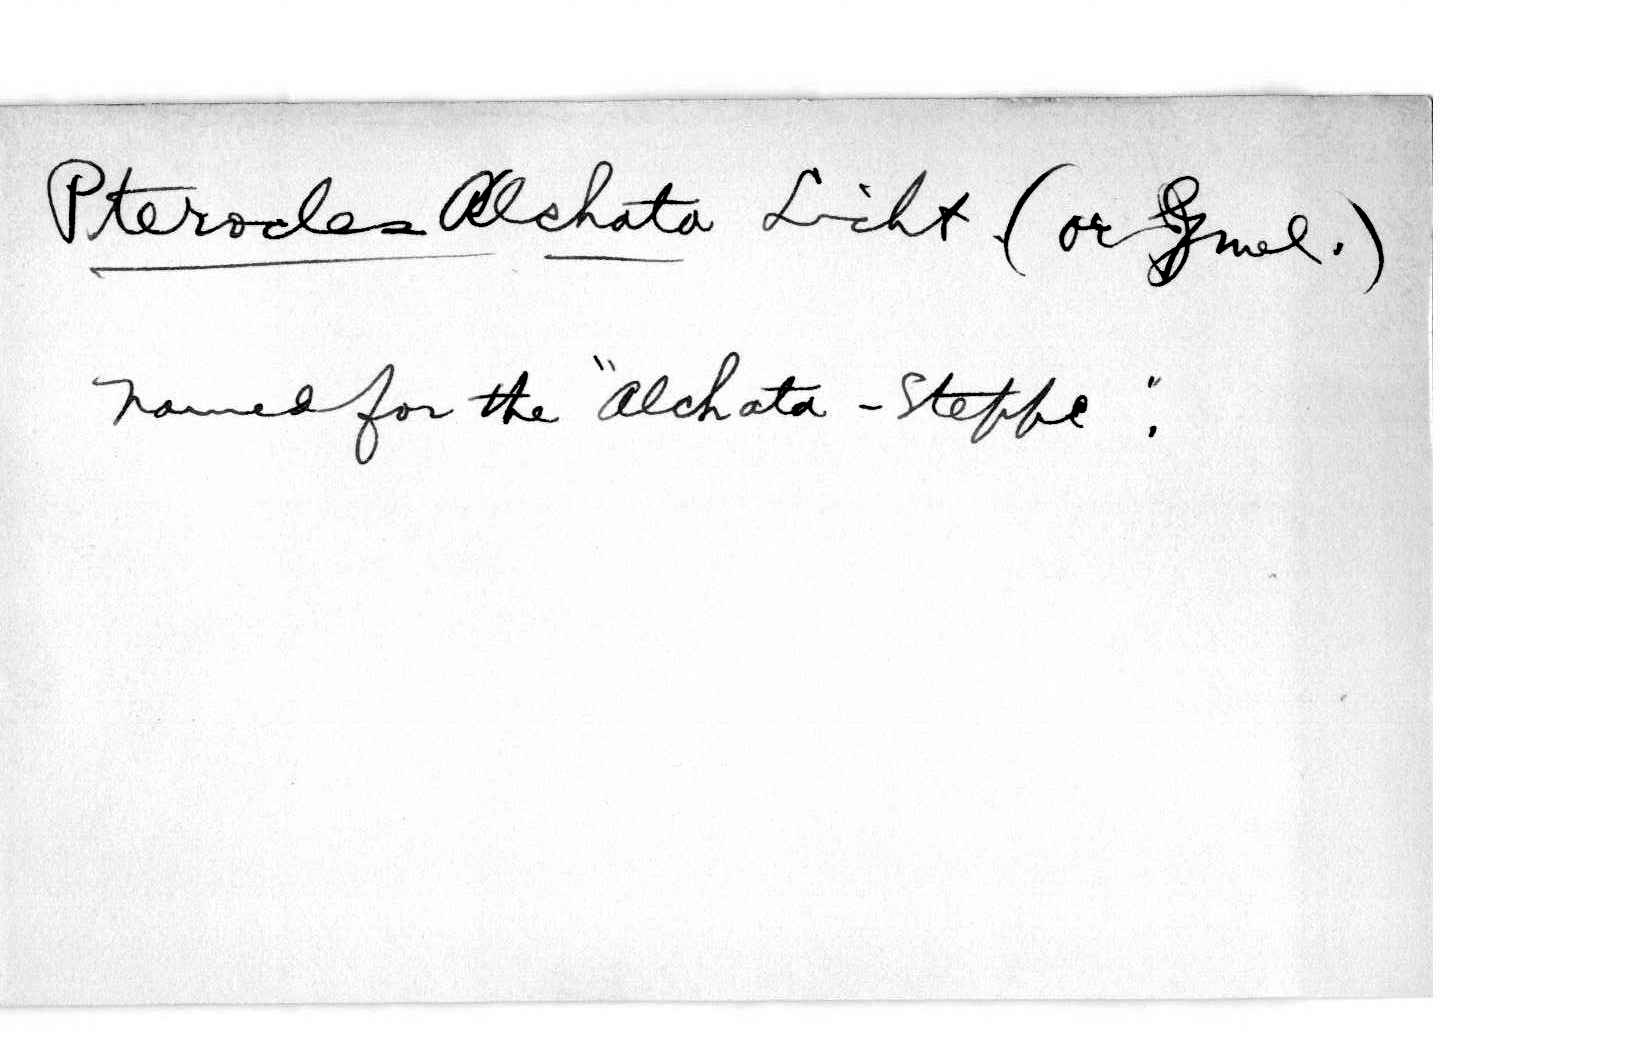 Pterocles Alchata Licht. (or Gmel.)
Named for the "Alchata - Steppe".